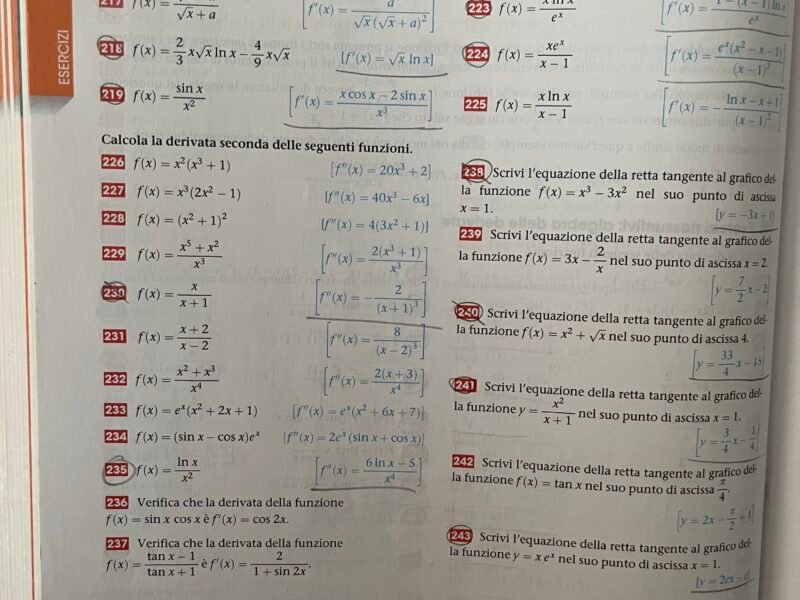 ESERCIZI
217 f(x) = / √x + a [f'(x) = a / √x (√x + a)²]
218 f(x) = 2/3 x√x ln x − 4/9 x√x [f'(x) = √x ln x]
219 f(x) = sin x / x² [f'(x) = x cos x − 2 sin x / x³]
Calcola la derivata seconda delle seguenti funzioni.
226 f(x) = x²(x³ + 1) [f''(x) = 20x³ + 2]
227 f(x) = x³(2x² − 1) [f''(x) = 40x³ − 6x]
228 f(x) = (x² + 1)² [f''(x) = 4(3x² + 1)]
229 f(x) = x⁵ + x² / x³ [f''(x) = 2(x³ + 1) / x³]
230 f(x) = x / x + 1 [f''(x) = − 2 / (x + 1)³]
231 f(x) = x + 2 / x − 2 [f''(x) = 8 / (x − 2)³]
232 f(x) = x² + x³ / x⁴ [f''(x) = 2(x + 3) / x⁴]
233 f(x) = eˣ(x² + 2x + 1) [f''(x) = eˣ(x² + 6x + 7)]
234 f(x) = (sin x − cos x)eˣ [f''(x) = 2eˣ (sin x + cos x)]
235 f(x) = ln x / x² [f''(x) = 6 ln x − 5 / x⁴]
236 Verifica che la derivata della funzione
f(x) = sin x cos x è f'(x) = cos 2x.
237 Verifica che la derivata della funzione
f(x) = tan x − 1 / tan x + 1 è f'(x) = 2 / 1 + sin 2x.
223 f(x) = x ln x / eˣ
224 f(x) = xeˣ / x − 1 [f'(x) = eˣ(x² − x − 1) / (x − 1)²]
225 f(x) = x ln x / x − 1 [f'(x) = − ln x − x + 1 / (x − 1)²]
238 Scrivi l'equazione della retta tangente al grafico del-
la funzione f(x) = x³ − 3x² nel suo punto di ascissa
x = 1. [y = −3x + 1]
239 Scrivi l'equazione della retta tangente al grafico del-
la funzione f(x) = 3x − 2/x nel suo punto di ascissa x = 2.
[y = 7/2 x − 2]
240 Scrivi l'equazione della retta tangente al grafico del-
la funzione f(x) = x² + √x nel suo punto di ascissa 4.
[y = 33/4 x − 15]
241 Scrivi l'equazione della retta tangente al grafico del-
la funzione y = x² / x + 1 nel suo punto di ascissa x = 1.
[y = 3/4 x − 1/4]
242 Scrivi l'equazione della retta tangente al grafico del-
la funzione f(x) = tan x nel suo punto di ascissa π/4.
[y = 2x − π/2 + 1]
243 Scrivi l'equazione della retta tangente al grafico del-
la funzione y = x eˣ nel suo punto di ascissa x = 1.
[y = 2ex − e]